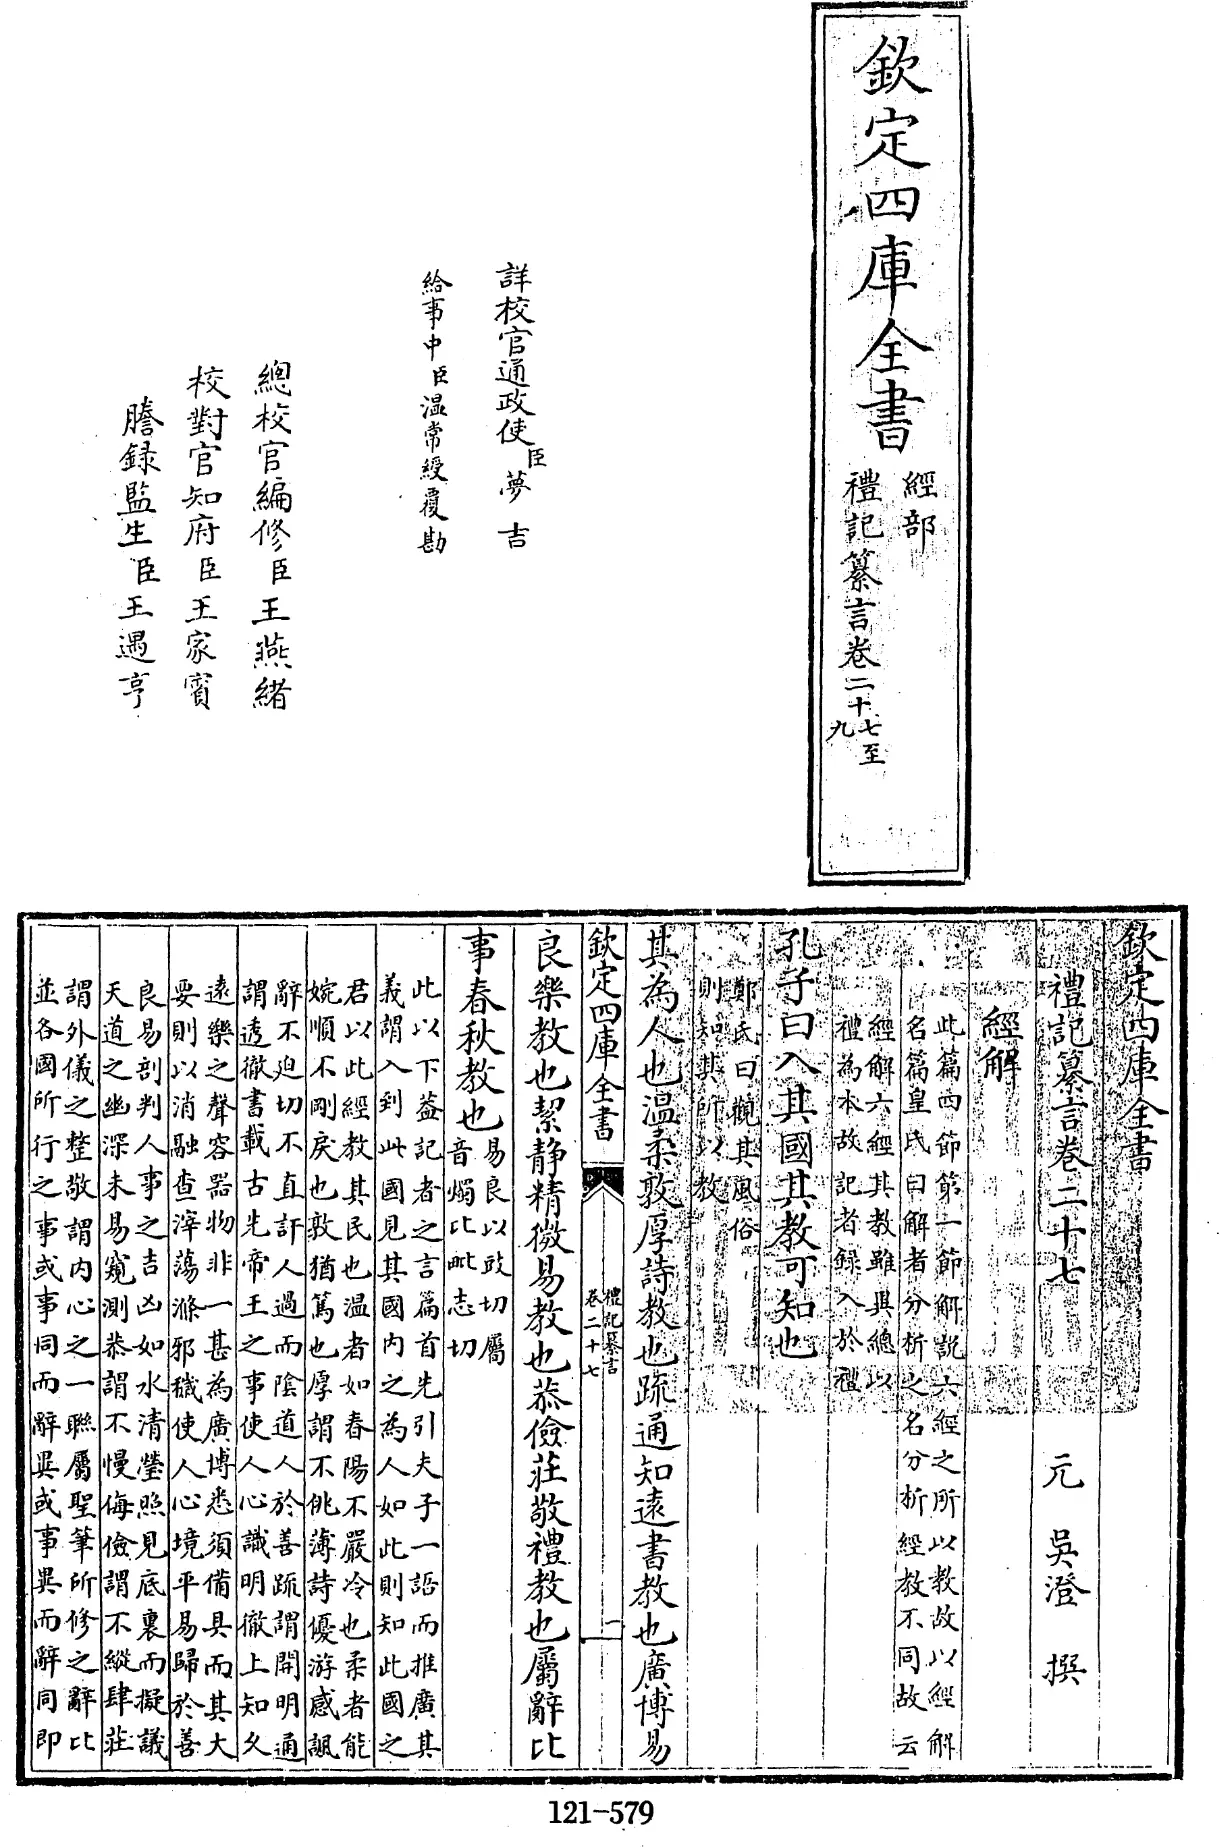 欽定四庫全書
經部
禮記纂言卷二十七至
九
詳校官通政使臣夢吉
給事中臣温常綬覆勘
總校官編修臣王燕緒
校對官知府臣王家賓
謄録監生臣王遇亨
欽定四庫全書
禮記纂言卷二十七
元 吳澄 撰
經解
此篇西節第一節解説六經之所以教故以經解
名篇皇氏曰解者分析之名分析經教不同故云
經解六經其教雖異總以
禮為本故記者録入於禮
孔子曰入其國其教可知也
鄭氏曰觀其風俗
則知其所以教
其為人也温柔敦厚詩教也疏通知遠書教也廣博易
欽定四庫全書
禮記纂言
卷二十七
一
良樂教也絜静精微易教也恭儉莊敬禮教也屬辭比
事春秋教也
易良以豉切屬
音燭比毗志切
此以下葢記者之言篇首先引夫子一語而推廣其
義謂入到此國見其國内之為人如此則知此國之
君以此經教其民也温者如春陽不嚴冷也柔者能
婉順不剛戾也敦猶篤也厚謂不佻薄詩優游感諷
辭不迫切不直訐人過而陰道人於善疏謂開明通
謂透徹書載古先帝王之事使人心識明徹上知久
遠樂之聲容器物非一甚為廣博悉須備具而其大
要則以消融查滓蕩滌邪穢使人心境平易歸於善
良易剖判人事之吉凶如水清瑩照見底裏而擬議
天道之幽深未易窺測恭謂不慢侮儉謂不縱肆莊
謂外儀之整敬謂内心之一聯屬聖筆所修之辭比
並各國所行之事或事同而辭異或事異而辭同即
121-579